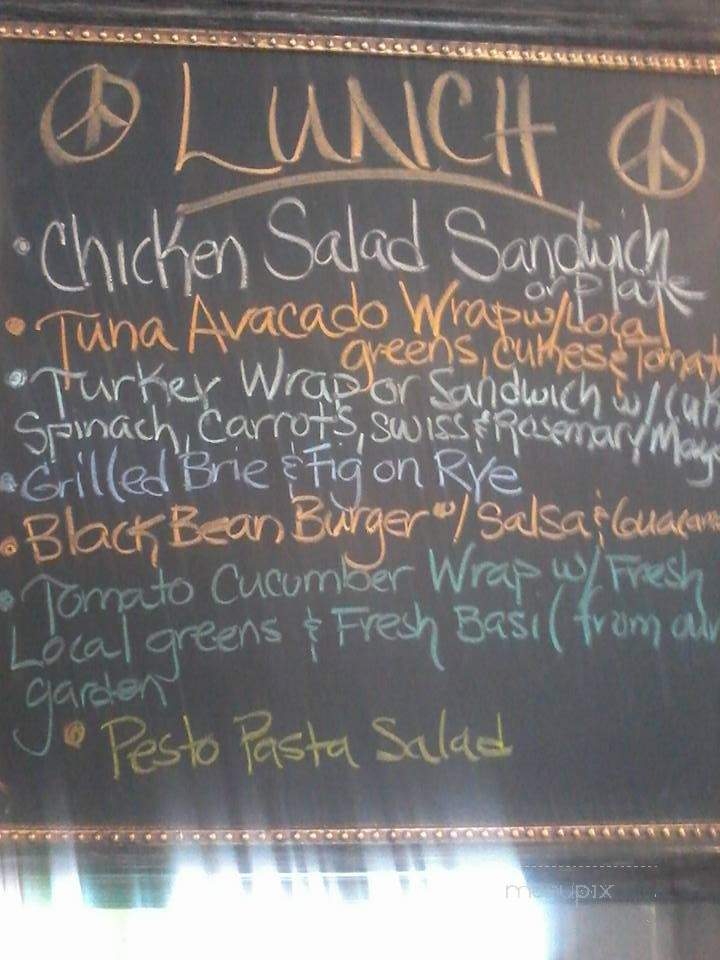 LUNCH
• Chicken Salad Sandwich
or Plate
• Tuna Avacado Wrap w/Local
greens, cukes & Tomat
• Turkey Wrap or Sandwich w/ Cuk
Spinach, Carrots, Swiss & Rosemary Mayo
• Grilled Brie & Fig on Rye
• Black Bean Burger w/ Salsa & Guacam
• Tomato Cucumber Wrap w/ Fresh
Local greens & Fresh Basil (from our
garden
• Pesto Pasta Salad
menupix